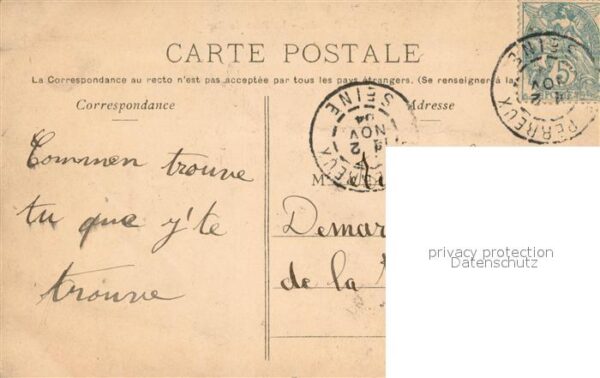 CARTE POSTALE
La Correspondance au recto n'est pas acceptée par tous les pays étrangers. (Se renseigner à la
Correspondance
Adresse
PERREUX
SEINE
14
NOV
04
PERREUX
SEINE
NOV
5
Commen trouve
tu que j'te
trouve
M
Demar
de la
privacy protection
Datenschutz